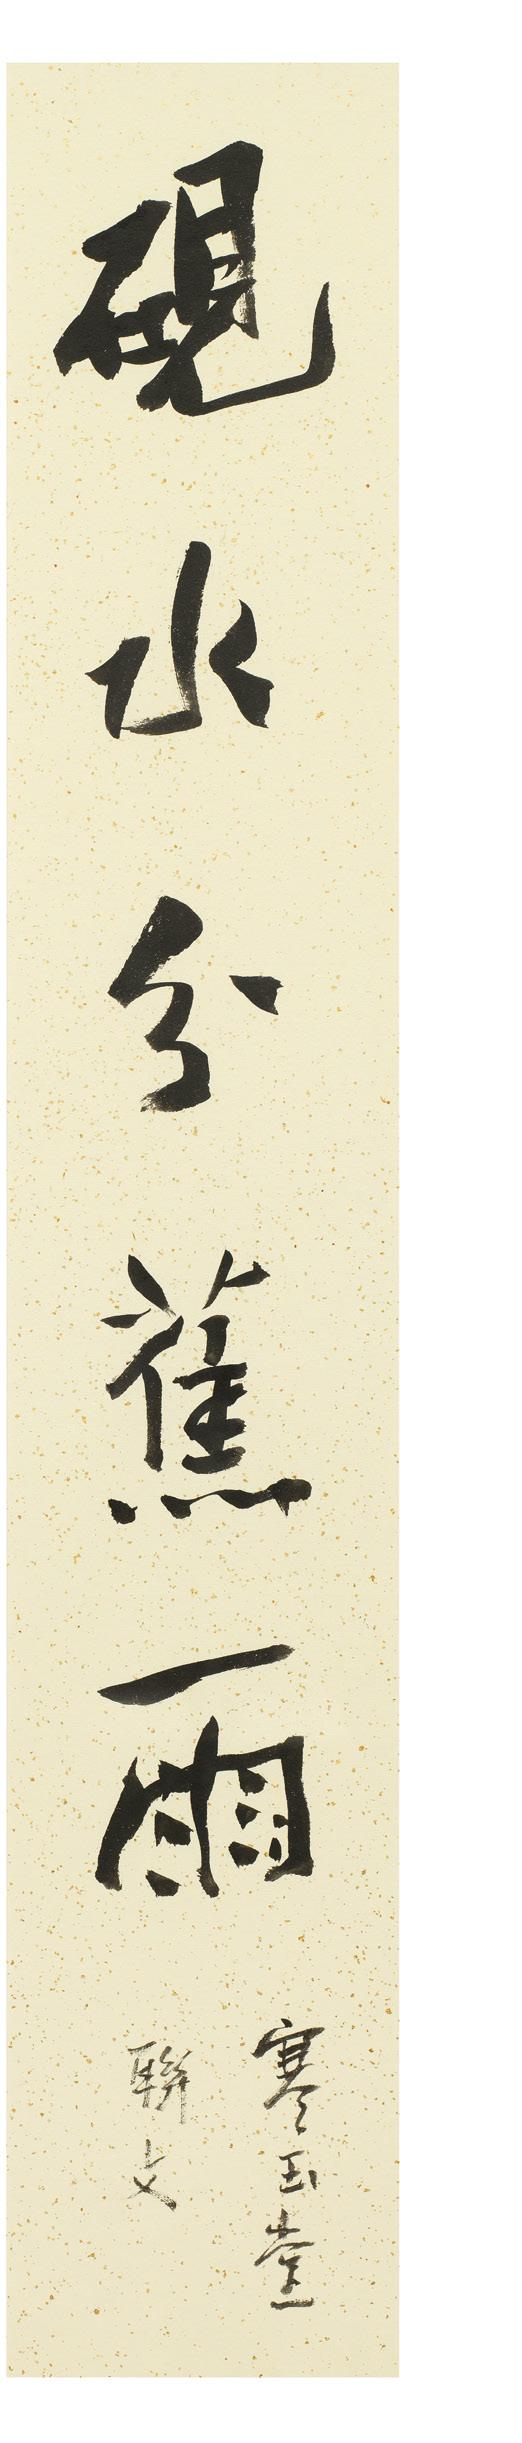 硯水分蕉雨
寒玉堂
聯文